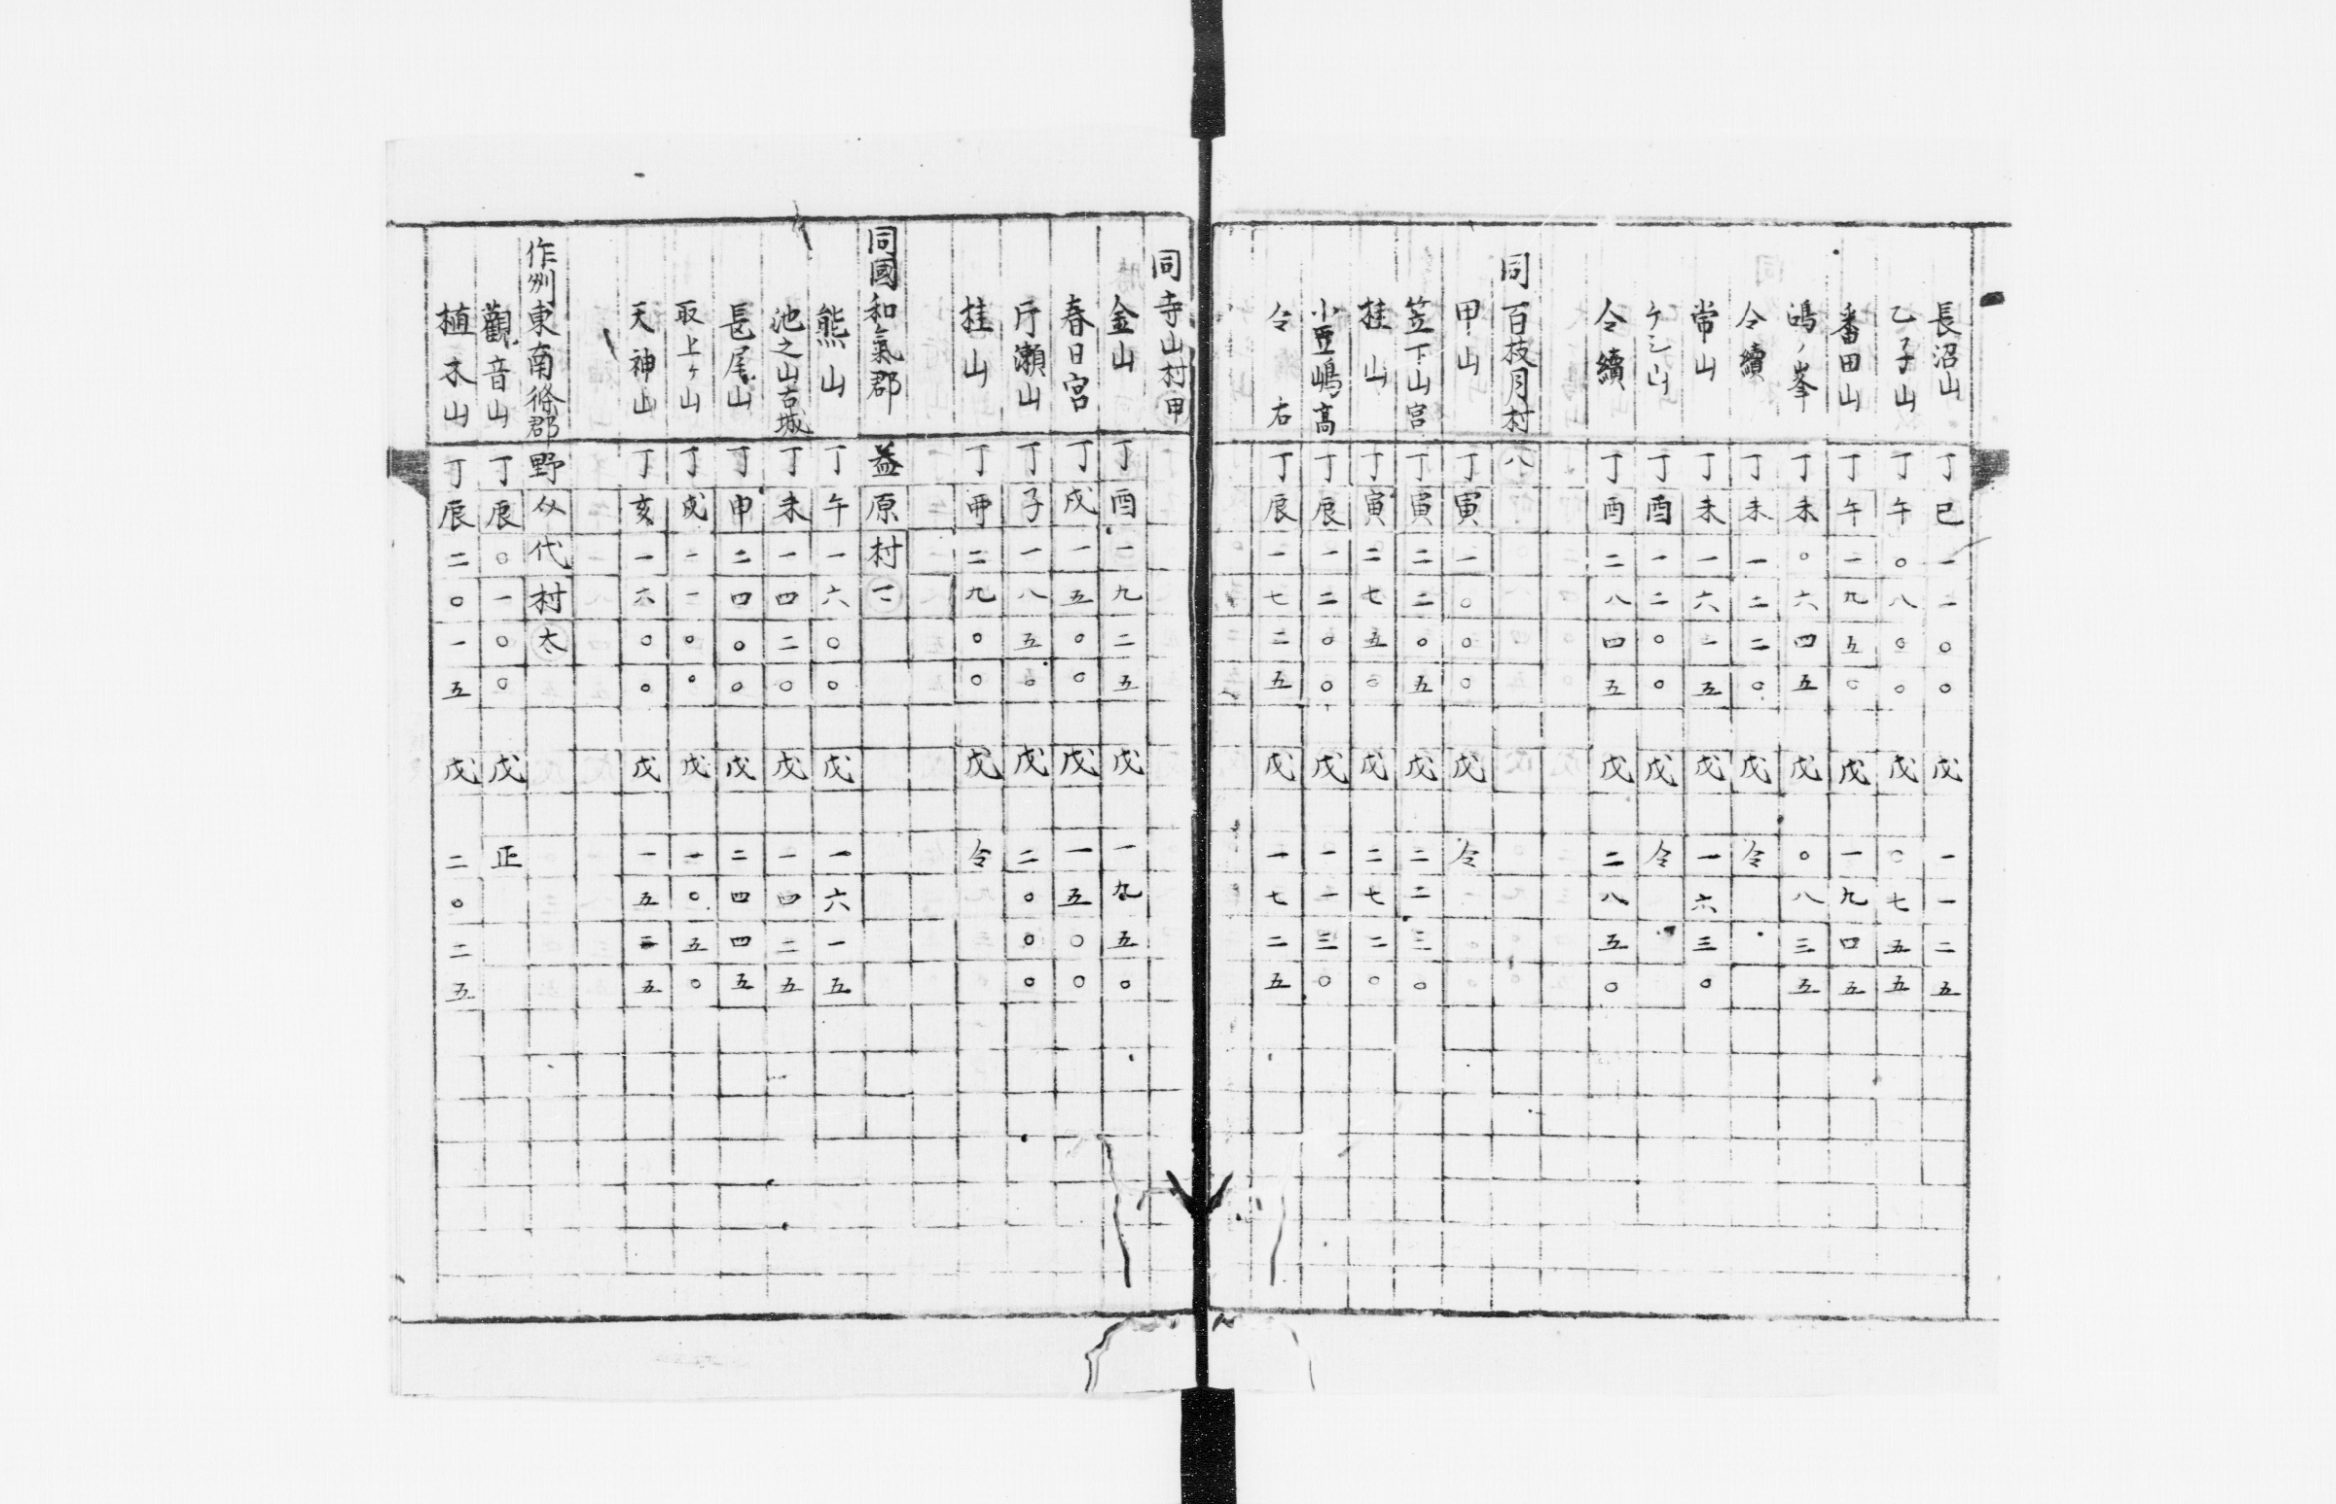 長沼山 丁巳一一〇〇 戊 一一二五
乙子山 丁午〇八〇〇 戊 〇七五五
番田山 丁午一九五〇 戊 一九四五
鴻ノ峯 丁未〇六四五 戊 〇八三五
仝續 丁未一二二〇 戊 仝
常山 丁未一六一五 戊 一六三〇
ケシ山 丁酉一二〇〇 戊 仝
仝續 丁酉二八四五 戊 二八五〇
同百枝月村 八
甲山 丁寅一〇〇〇 戊 仝
笠下山宮 丁寅二二〇五 戊 二二三〇
桂山 丁寅二七五〇 戊 二七二〇
小豆嶋高 丁辰一二〇〇 戊 一一三〇
仝 右 丁辰一七二五 戊 一七二五
同寺山村甲
金山 丁酉一九二五 戊 一九五〇
春日宮 丁戌一五〇〇 戊 一五〇〇
斤瀬山 丁子一八五〇 戊 二〇〇〇
桂山 丁丑二九〇〇 戊 仝
同國和氣郡 益原村
熊山 丁午一六〇〇 戊 一六一五
池之山古城 丁未一四二〇 戊 一四二五
長尾山 丁申二四〇〇 戊 二四四五
取上ケ山 丁戌一一〇〇 戊 一〇五〇
天神山 丁亥一六〇〇 戊 一五五
作州東南條郡野介代村 太
觀音山 丁辰〇一〇〇 戊 正
植木山 丁辰二〇一五 戊 二〇二五